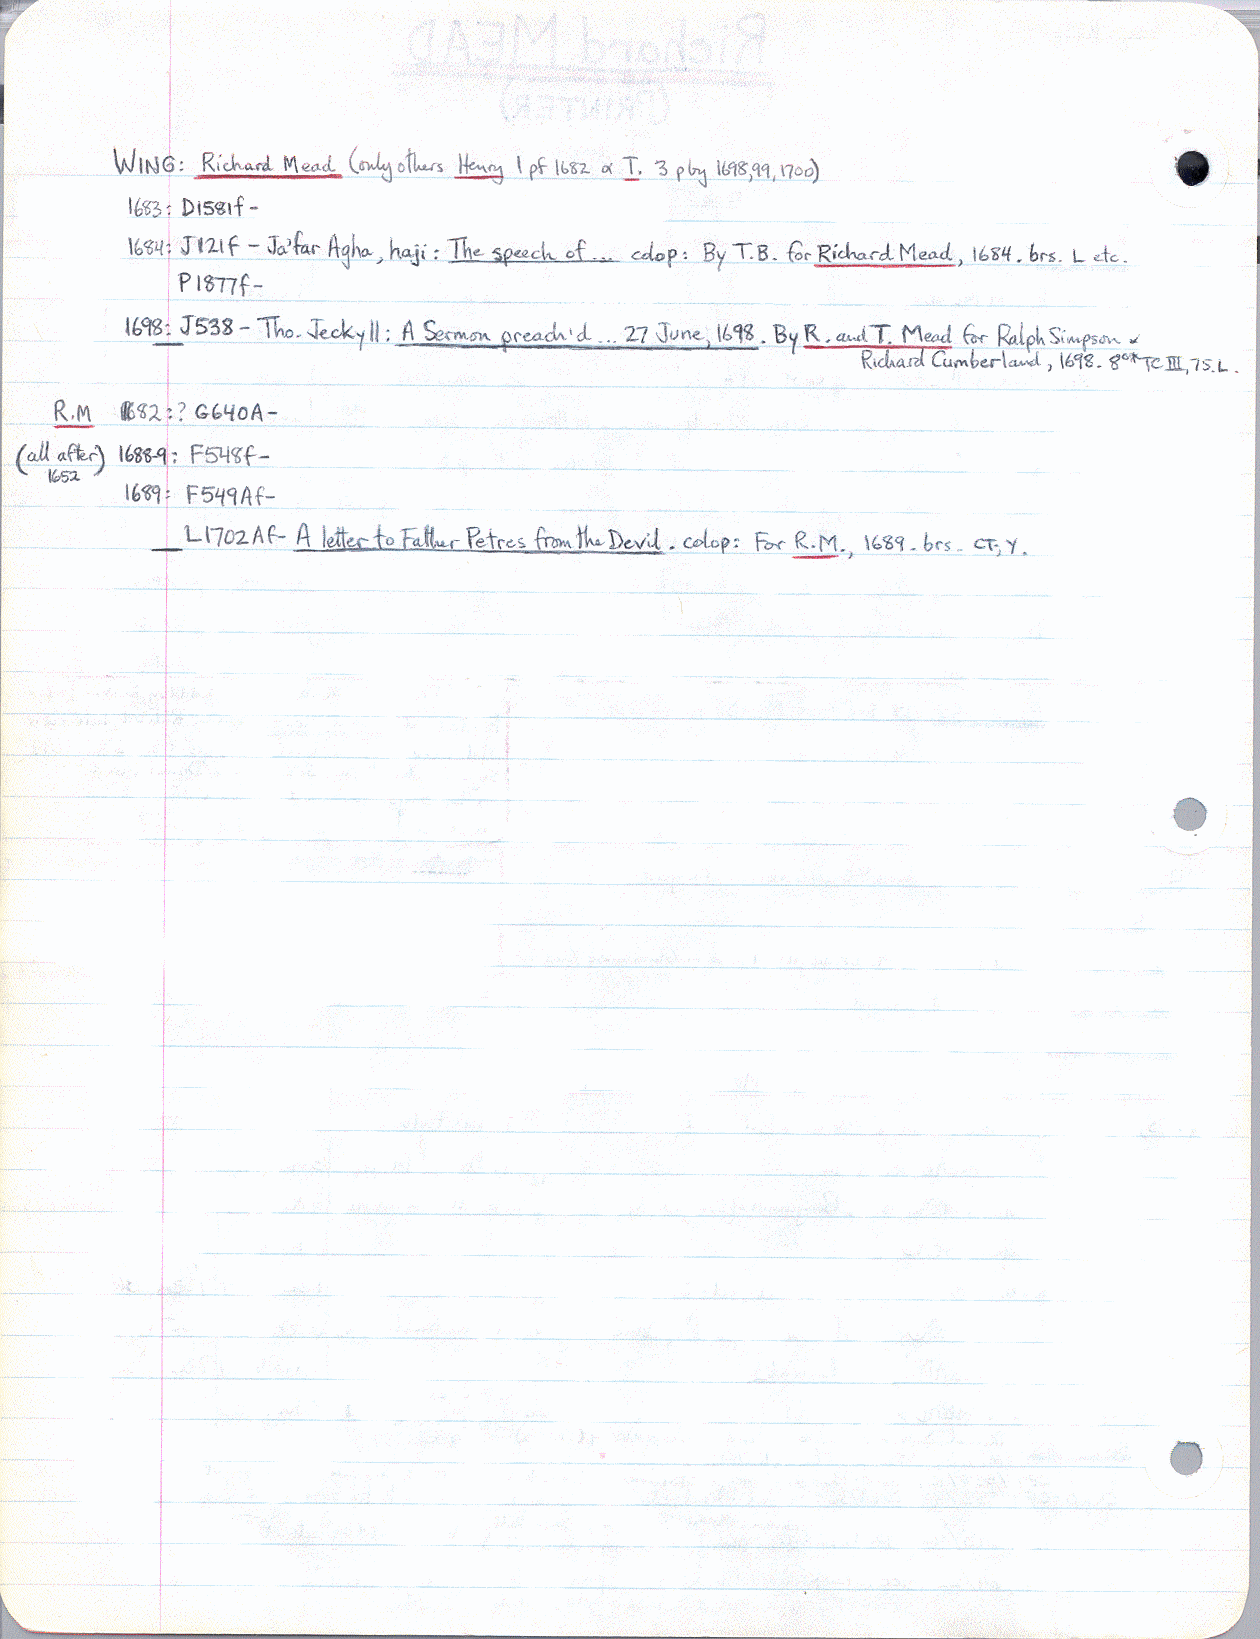 WING: Richard Mead (only others Henry 1 pf 1682 & T. 3 p by 1698,99,1700)
1683: D1581f -
1684: J121f - Ja'far Agha, haji: The speech of ... colop: By T.B. for Richard Mead, 1684. brs. L etc.
P1877f -
1698: J538 - Tho. Jeckyll: A Sermon preach'd ... 27 June, 1698. By R. and T. Mead for Ralph Simpson &
Richard Cumberland, 1698. 8° * TC III, 75. L.
R.M 1682:? G640A -
(all after) 1688-9: F548f -
1652
1689: F549Af -
L1702Af - A letter to Father Petres from the Devil. colop: For R.M., 1689. brs. CT, Y.